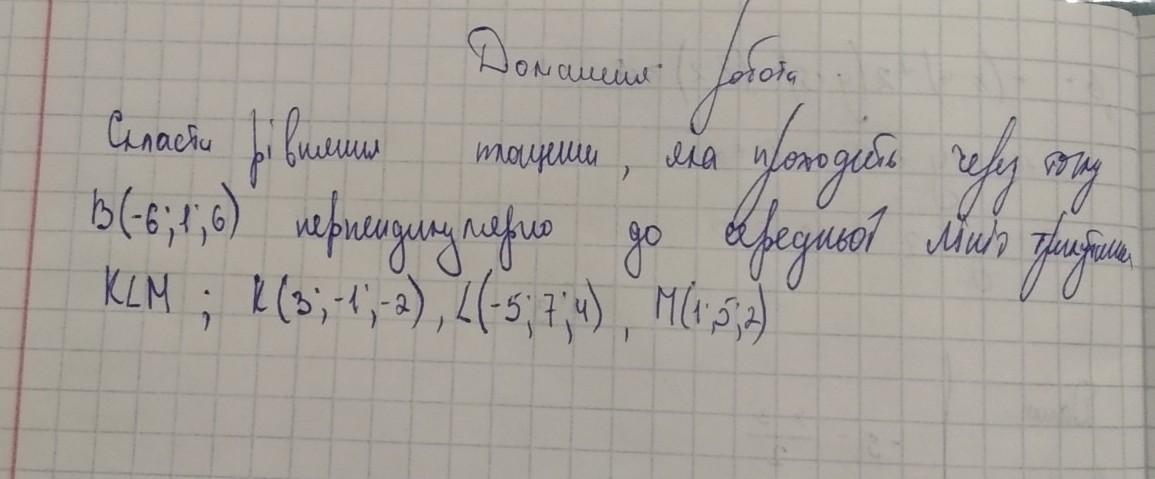 Домашня робота
Скласти рівняння площини, яка проходить через точку
B(-6;1;6) перпендикулярно до середньої лінії трикутника
KLM ; K(3;-1;-2), L(-5;7;4), M(1;5;2)